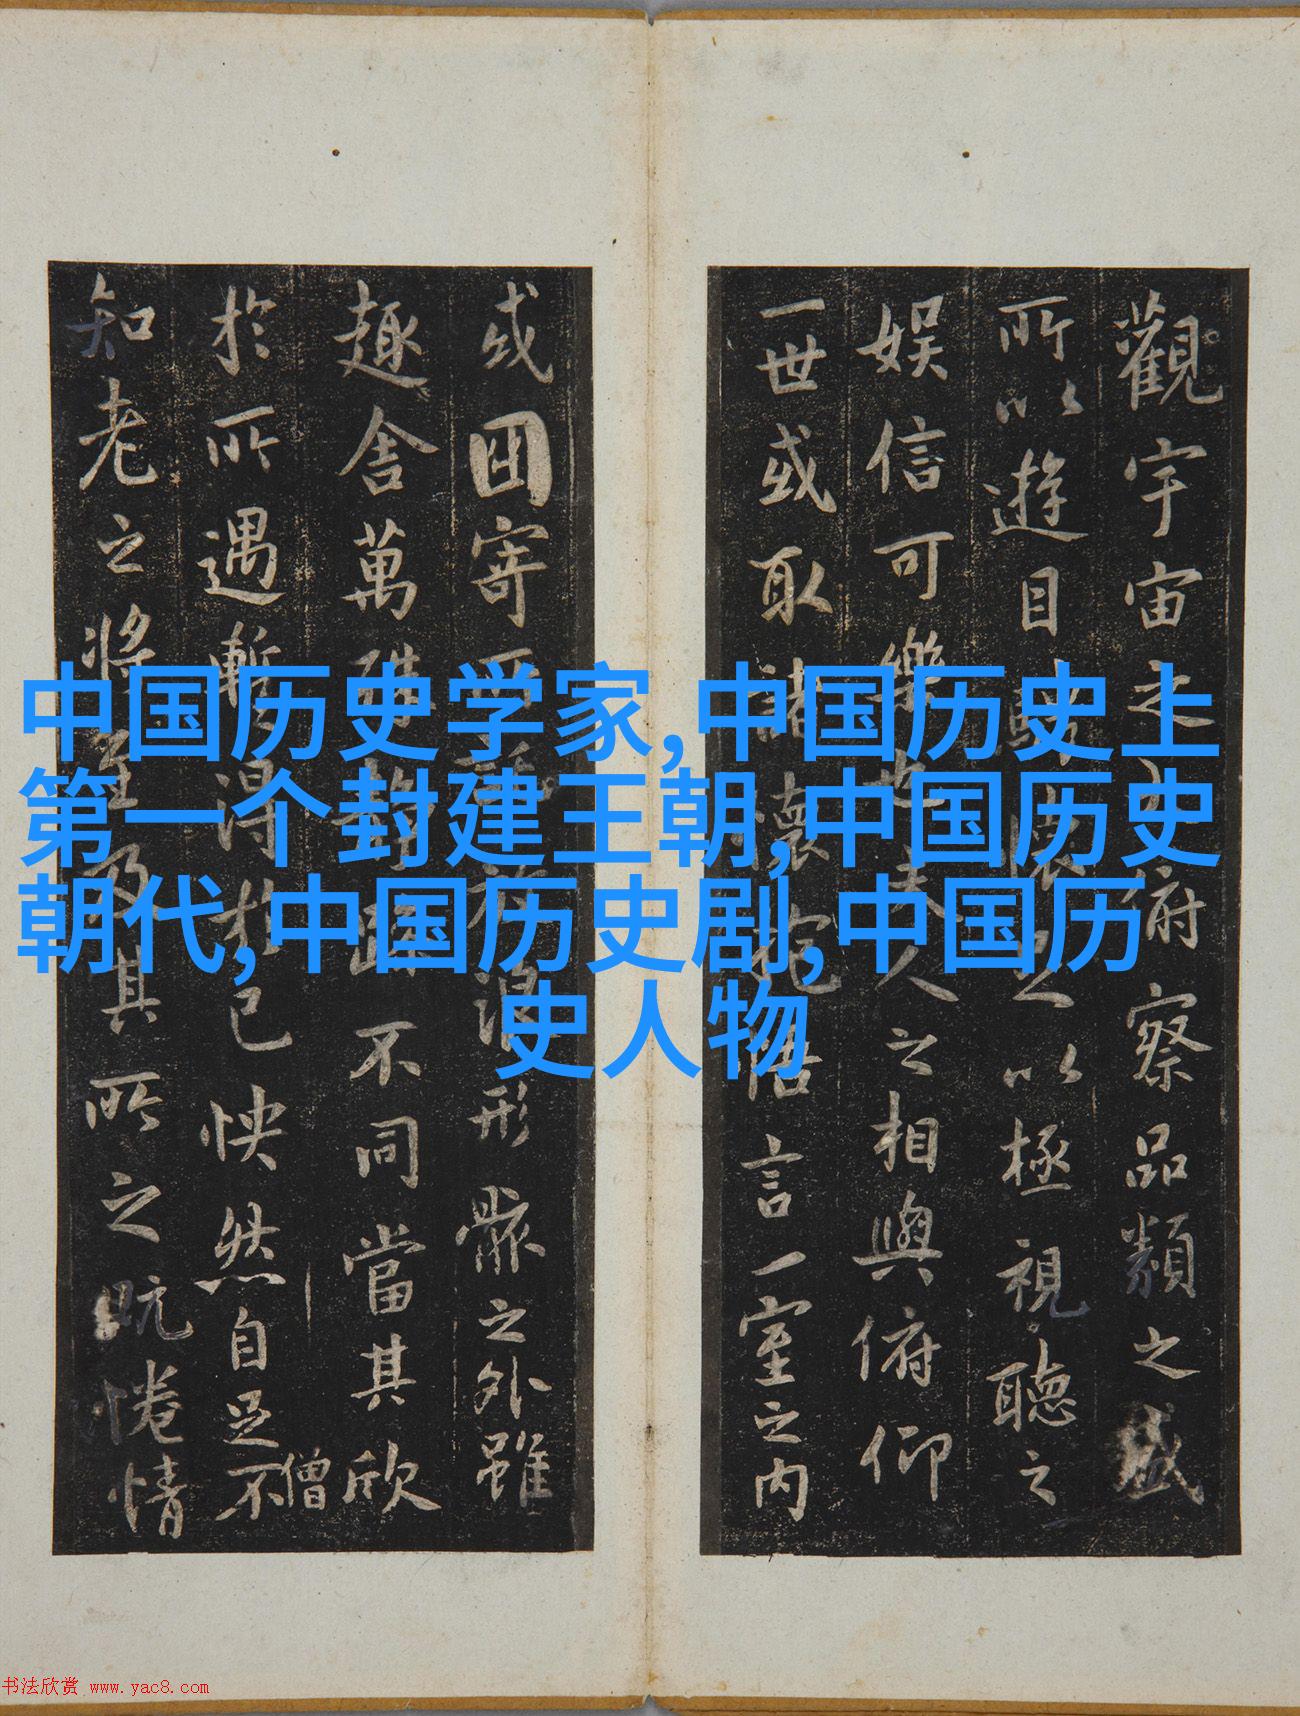 中国历史学家,中国历史上
第一个封建王朝,中国历史
朝代,中国历史剧,中国历
史人物
觀宇宙之大俯察品類之盛
所以遊目騁懷足以極視聽之
娛信可樂也夫人之相與俯仰
一世或取諸懷抱悟言一室之內
或因寄所託放浪形骸之外雖
趣舍萬殊靜躁不同當其欣
於所遇暫得於己怏然自足不
僧
知老之將至及其所之既惓情
书法欣赏 www.yac8.com